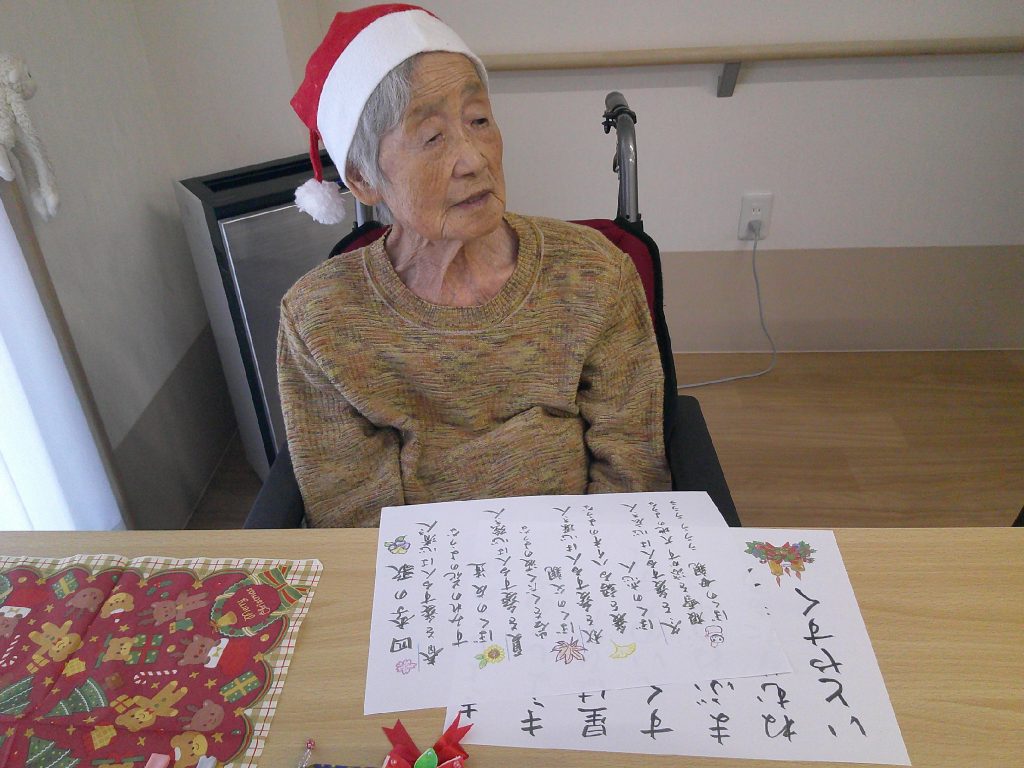 四季の歌
春を愛する人は心清き人
すみれの花のような
ぼくの友達
夏を愛する人は心強き人
岩をくだく波のような
ぼくの父親
秋を愛する人は心深き人
愛を語るハイネのような
ぼくの恋人
冬を愛する人は心広き人
根雪をとかす大地のような
ぼくの母親
き
星は
すく
まぶ
ねむ
いとやすく
Merry
Christmas